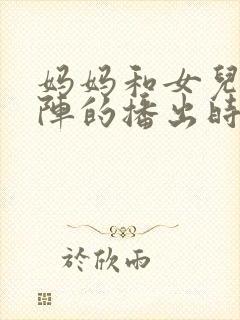 妈妈和女兒
陣的播出時
於欣雨